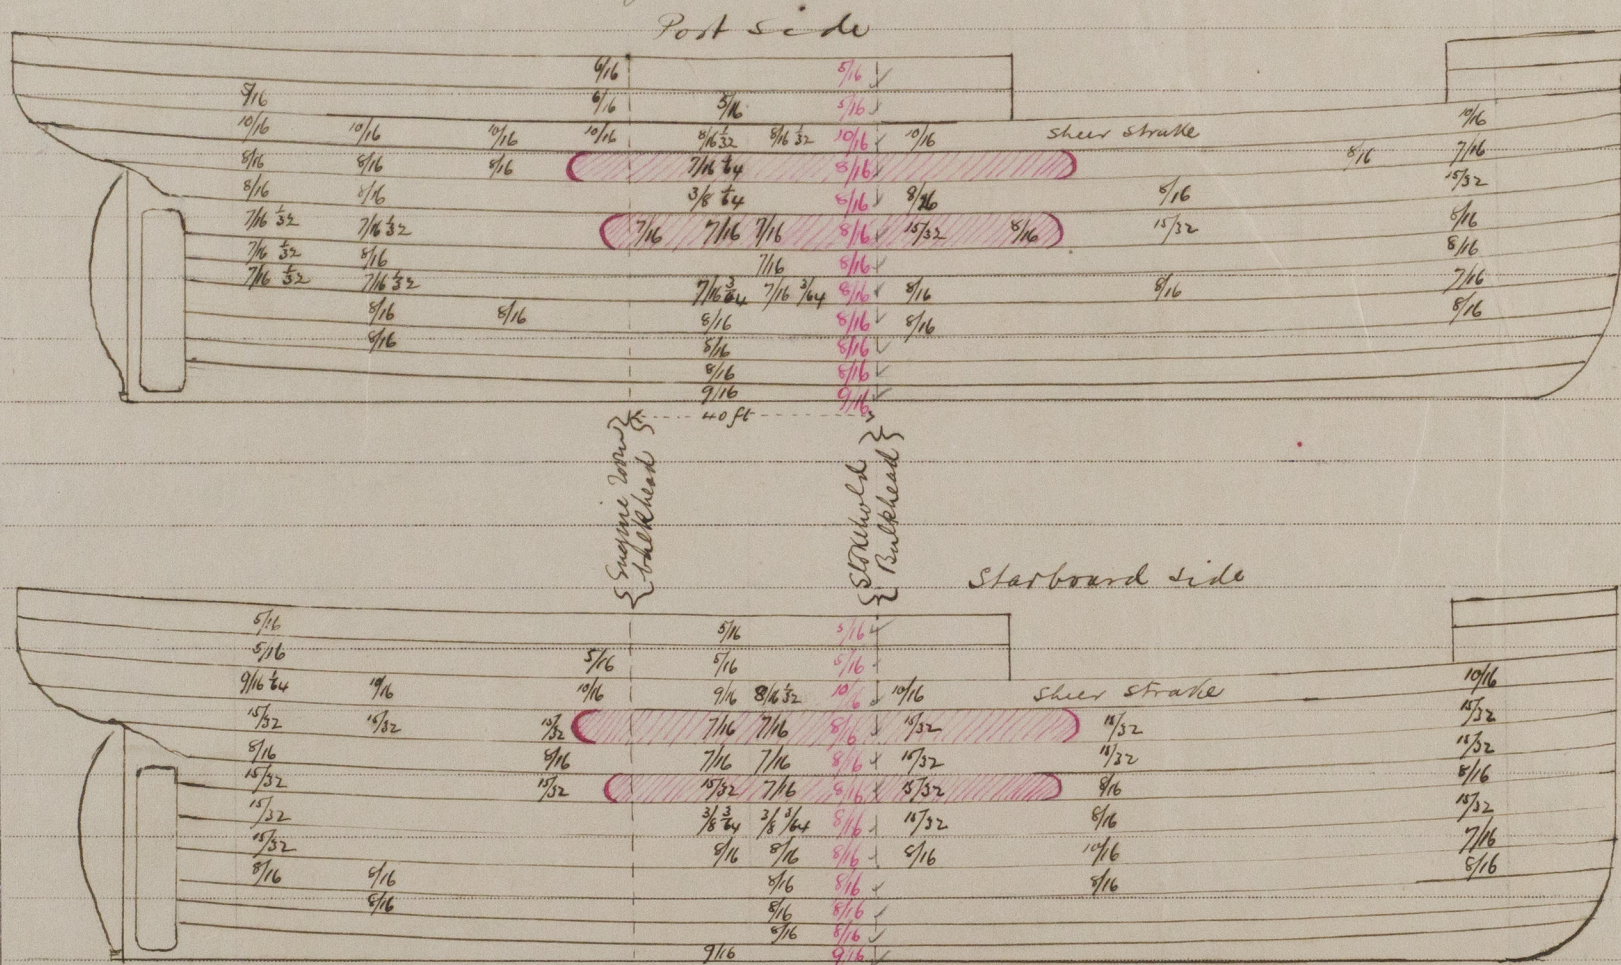 Port Side
6/16 5/16
5/16 6/16 5/16 5/16
10/16 10/16 10/16 10/16 8/16 1/32 8/16 1/32 10/16 10/16 sheer strake 10/16
8/16 8/16 8/16 7/16 1/64 8/16 8/16 7/16
8/16 8/16 3/8 1/64 8/16 8/16 15/32
7/16 1/32 7/16 1/32 7/16 7/16 7/16 8/16 15/32 8/16 15/32 8/16
7/16 1/32 8/16 7/16 8/16 8/16
7/16 1/32 7/16 1/32 7/16 3/64 7/16 3/64 8/16 8/16 8/16 7/16
8/16 8/16 8/16 8/16 8/16 8/16
8/16 8/16 8/16
8/16 8/16
9/16 9/16
40 ft
Engine room
bulkhead
Stokehold
Bulkhead
Starboard side
5/16 5/16 5/16
5/16 5/16 5/16 5/16
9/16 1/64 10/16 9/16 8/16 1/32 10/16 10/16 sheer strake 10/16
15/32 15/32 15/32 7/16 7/16 8/16 15/32 15/32 15/32
8/16 8/16 7/16 7/16 8/16 15/32 15/32 15/32
15/32 15/32 15/32 7/16 8/16 15/32 8/16 8/16
15/32 3/8 3/64 3/8 3/64 8/16 15/32 8/16 15/32
15/32 8/16 8/16 8/16 8/16 10/16 7/16
8/16 8/16 8/16 8/16 8/16 8/16
8/16 8/16 8/16
8/16 8/16
9/16 9/16